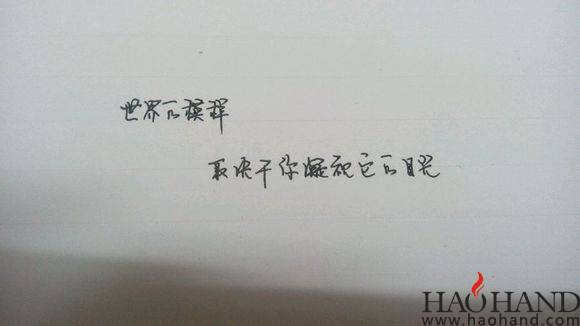 世界的模样
取决于你凝视它的目光
HAOHAND
www.haohand.com